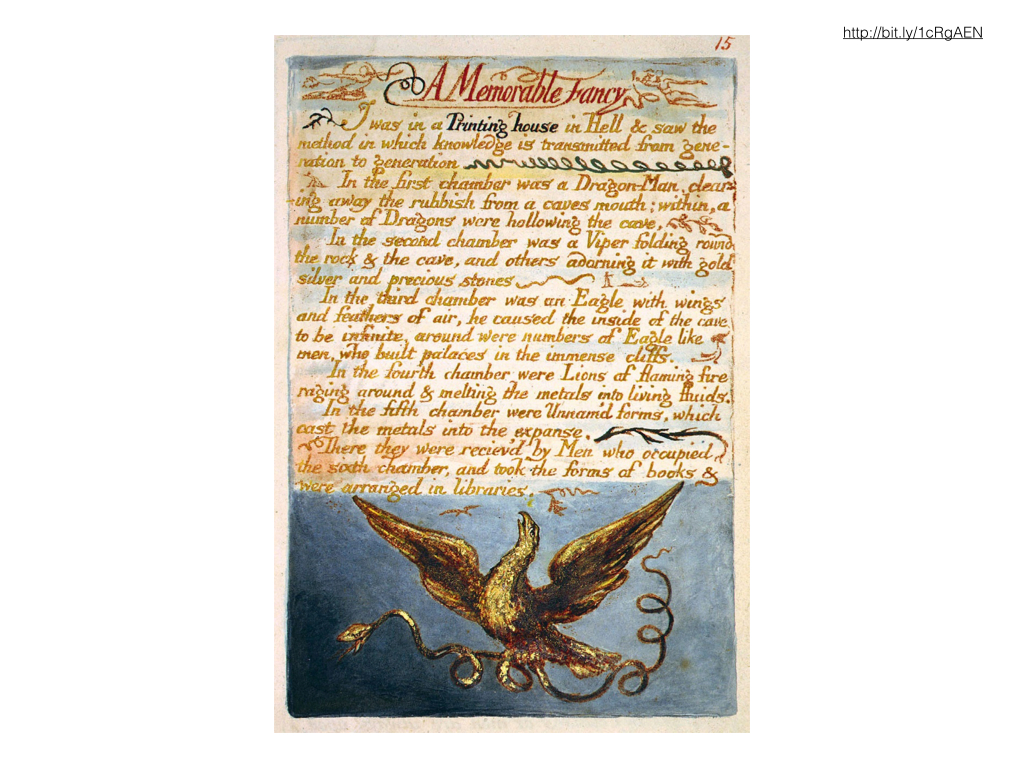 http://bit.ly/1cRgAEN
15
A Memorable Fancy
I was in a Printing house in Hell & saw the
method in which knowledge is transmitted from gene-
ration to generation
In the first chamber was a Dragon-Man, clear-
-ing away the rubbish from a caves mouth; within, a
number of Dragons were hollowing the cave,
In the second chamber was a Viper folding round
the rock & the cave, and others adorning it with gold
silver and precious stones
In the third chamber was an Eagle with wings
and feathers of air, he caused the inside of the cave
to be infinite, around were numbers of Eagle like
men, who built palaces in the immense cliffs.
In the fourth chamber were Lions of flaming fire
raging around & melting the metals into living fluids.
In the fifth chamber were Unnam'd forms, which
cast the metals into the expanse.
There they were reciev'd by Men who occupied
the sixth chamber, and took the forms of books &
were arranged in libraries.